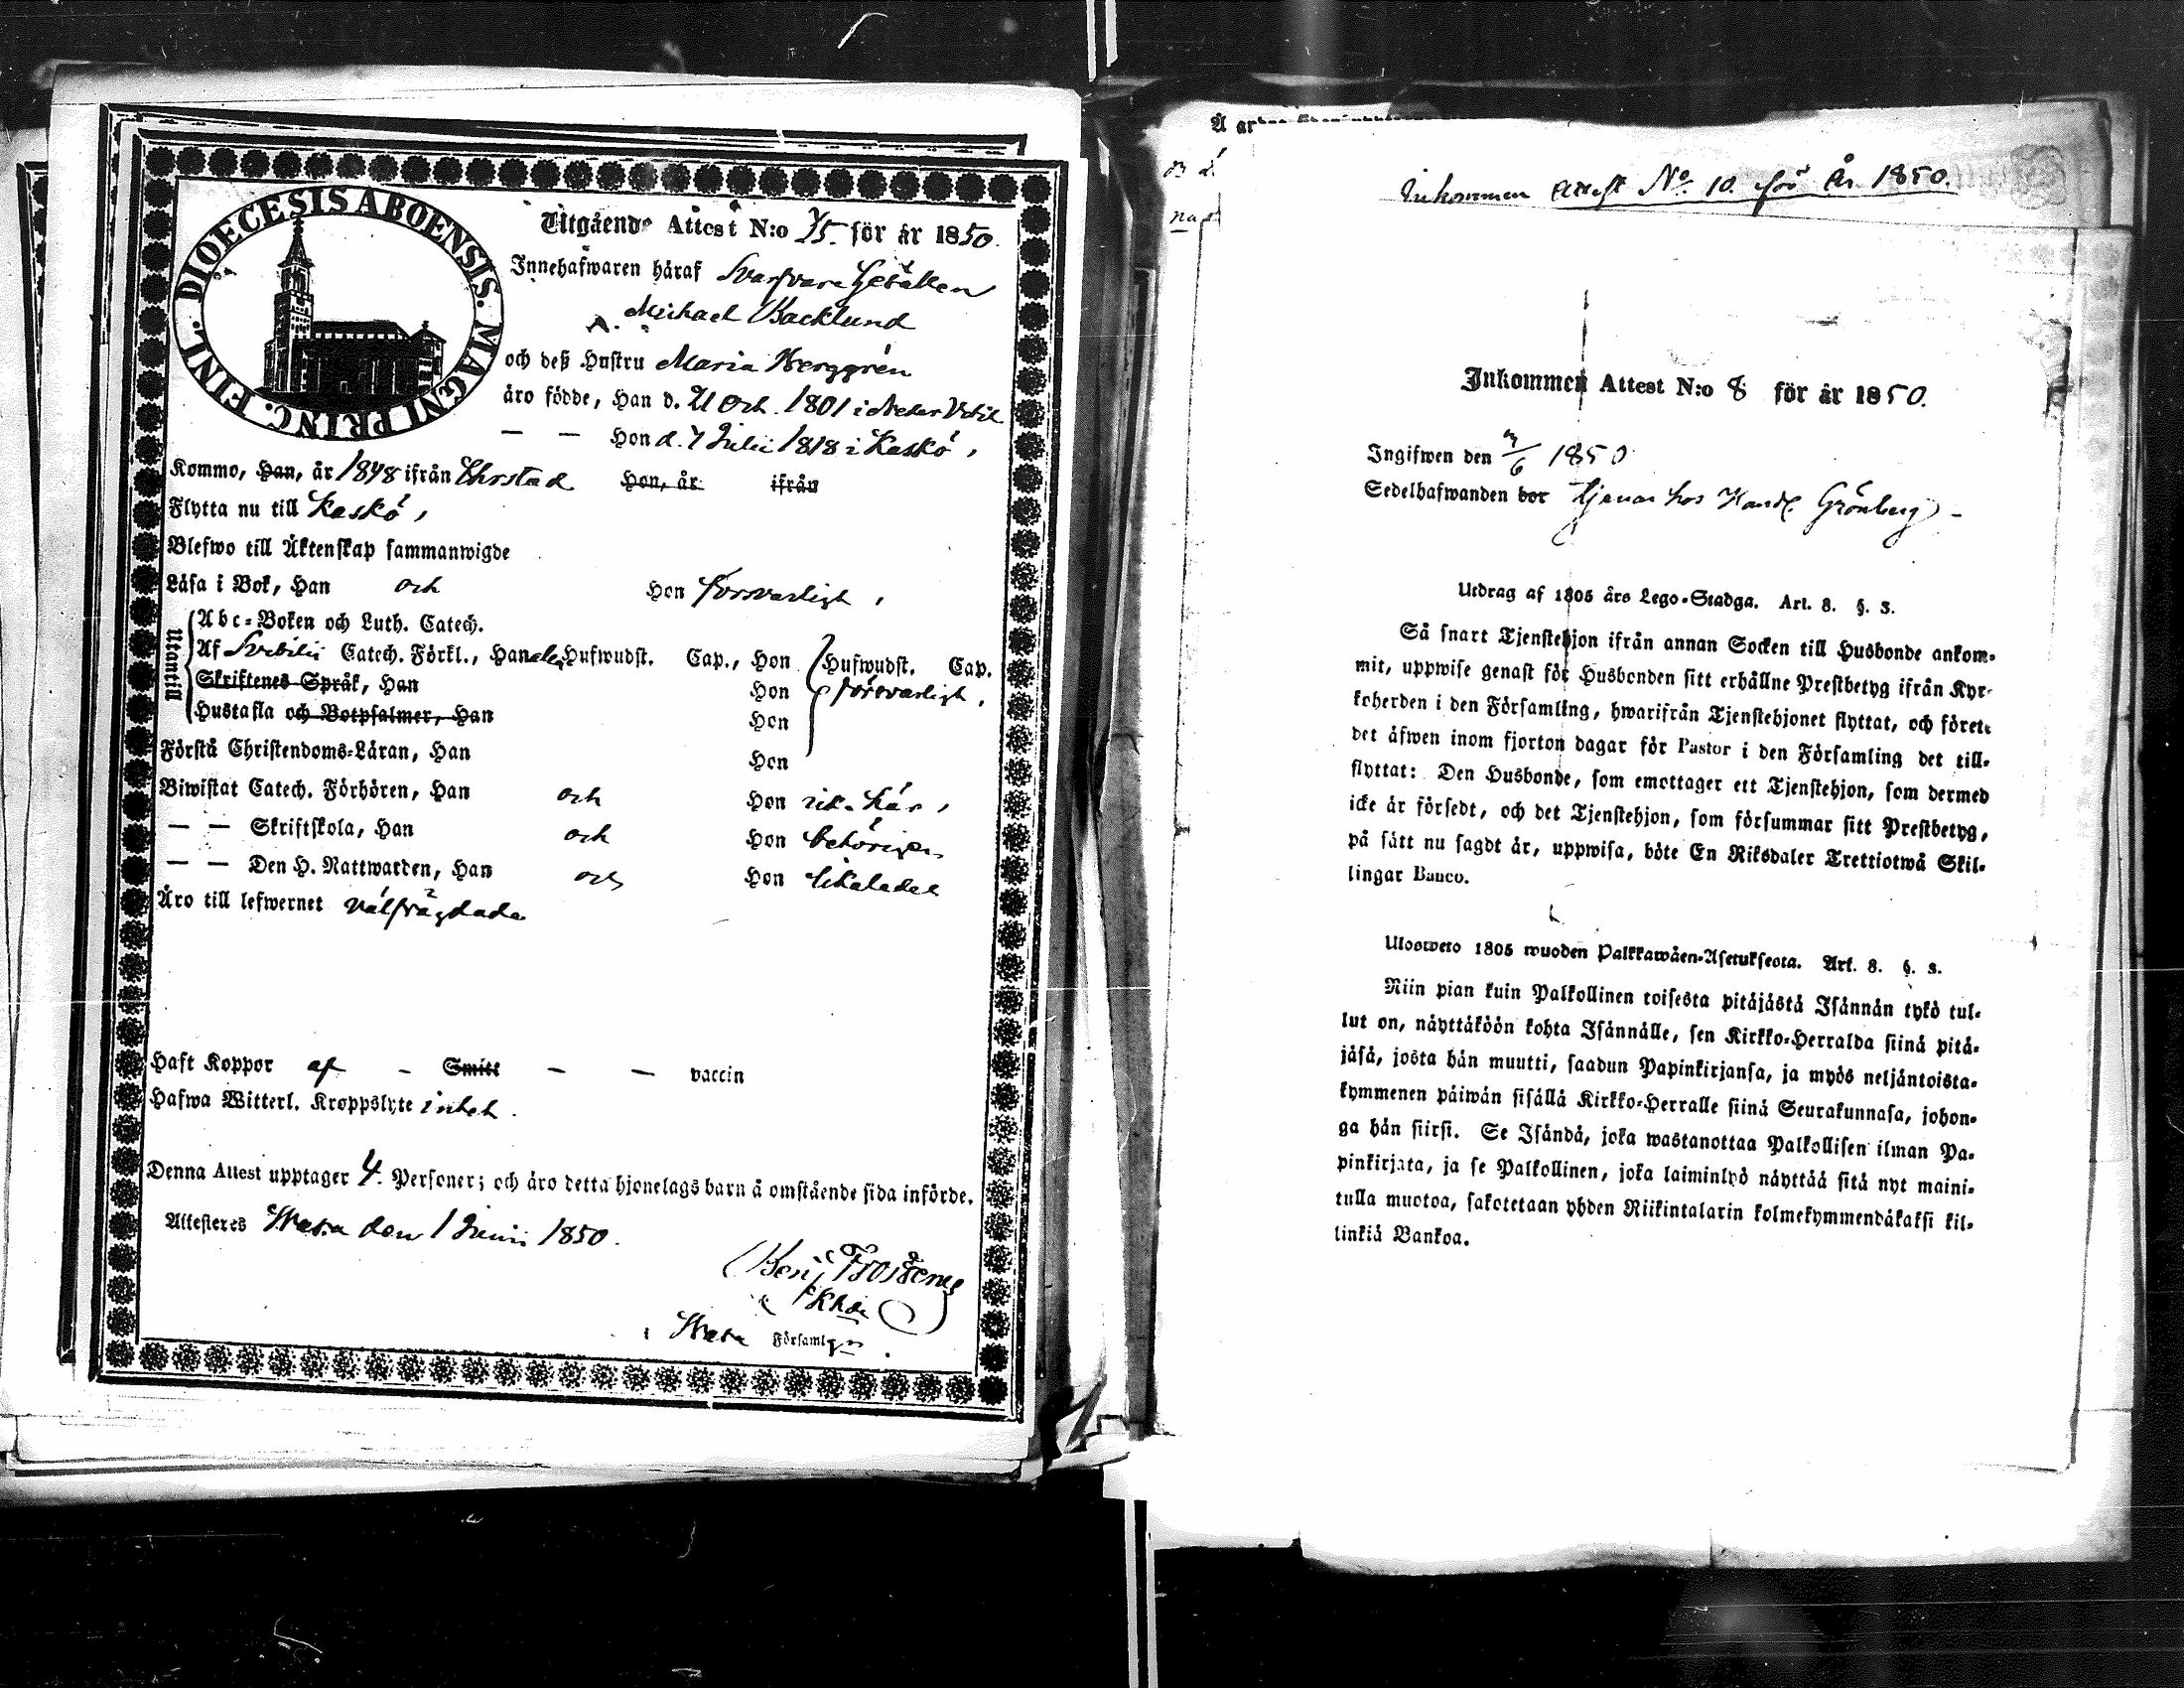 DIOECESIS ABOENSIS. MAGNI PRINC. FINL.
Utgående Attest N:o 35. för år 1850.
Innehafwaren häraf Svarfvare Gesällen
Michael Backlund
och deß Hustru Maria Berggrén
äro födde, Han d. 21 Oct. 1801 i Neder Vetil
— — Hon d. 7 Julii 1818 i Kaskö,
Kommo, Han, år 1848 ifrån Chrstad Hon, år ifrån
Flytta nu till Kaskö,
Blefwo till Äktenskap sammanwigde
Läsa i Bok, Han och Hon försvarligt,
Utantill
Abc-Boken och Luth. Catech.
Af Svebilii Catech. Förkl., Han Hufwudst. Cap., Hon Hufwudst. Cap.
Skriftenes Språk, Han Hon försvarligt,
Hustafla och Botpsalmer, Han Hon
Förstå Christendoms-Läran, Han Hon
Biwistat Catech. Förhören, Han och Hon här,
— — Skriftskola, Han och Hon behörigen
— — Den H. Nattwarden, Han och Hon likaledes
Äro till lefwernet välfrägdade
Haft Koppor af - Smitt — — vaccin
Hafwa Witterl. Kroppslyte intet.
Denna Attest upptager 4. Personer; och äro detta hjonelags barn å omstående sida införde.
Attesteras Wasa den 1 Junii 1850.
Benj. Frosterus
Khde
i Wasa Församling.
Inkommen attest No. 10 för år 1850.
Inkommen Attest N:o 8 för år 1850.
Ingifwen den 3/6 1850
Sedelhafwanden bor tjenar hos Handl. Grönberg -
Utdrag af 1805 års Lego-Stadga. Art. 8. §. 3.
Så snart Tjenstehjon ifrån annan Socken till Husbonde ankom-
mit, uppwise genast för Husbonden sitt erhållne Prestbetyg ifrån Kyr-
koherden i den Församling, hwarifrån Tjenstehjonet flyttat, och förete
det äfwen inom fjorton dagar för Pastor i den Församling det till-
flyttat: Den Husbonde, som emottager ett Tjenstehjon, som dermed
icke är försedt, och det Tjenstehjon, som försummar sitt Prestbetyg,
på sätt nu sagdt är, uppwisa, böte En Riksdaler Trettiotwå Skil-
lingar Banco.
Ulosweto 1805 wuoden Palkkawäen-Asetuksesta. Art. 8. §. 3.
Niin pian kuin Palkollinen toisesta pitäjästä Isännän tykö tul-
lut on, näyttäköön kohta Isännälle, sen Kirkko-Herralda siinä pitä-
jäsä, josta hän muutti, saadun Papinkirjansa, ja myös neljäntoista-
kymmenen päiwän sisällä Kirkko-Herralle siinä Seurakunnasa, johon-
ga hän siirsi. Se Isändä, joka wastanottaa Palkollisen ilman Pa-
pinkirjata, ja se Palkollinen, joka laiminlyö näyttää sitä nyt maini-
tulla muotoa, sakotetaan yhden Riikintalarin kolmekymmendäkaksi kil-
linkiä Bankoa.